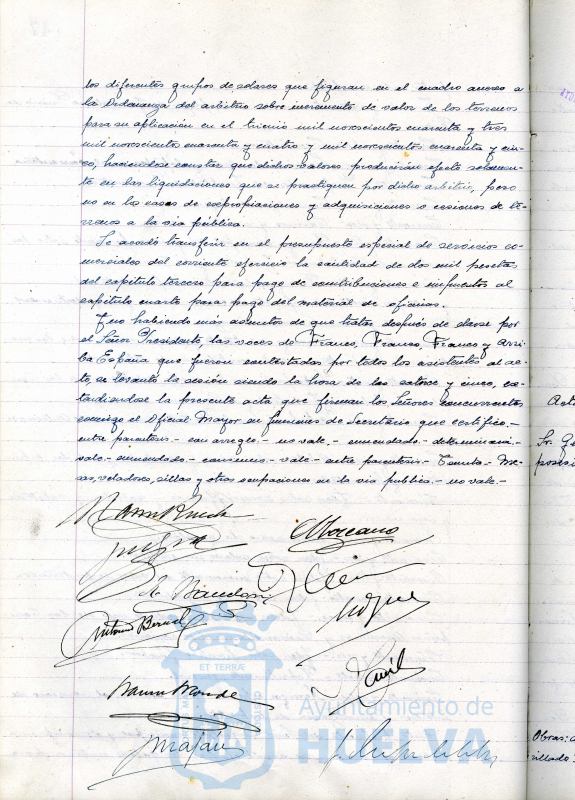 los diferentes grupos de solares que figuran en el cuadro anexo a
la Ordenanza del arbitrio sobre incremento de valor de los terrenos
para su aplicación en el trienio mil novecientos cuarenta y tres
mil novecientos cuarenta y cuatro y mil novecientos cuarenta y cin-
co, haciendose constar que dichos valores producirán efecto solamen-
te en las liquidaciones que se practiquen por dicho arbitrio, pero
no en los casos de expropiaciones y adquisiciones o cesiones de te-
rrenos a la via pública.
Se acordó transferir en el presupuesto especial de servicios co-
merciales del corriente ejercicio la cantidad de dos mil pesetas
del capítulo tercero para pago de contribuciones e impuestos al
capítulo cuarto para pago del material de oficinas.
Y no habiendo más asuntos de que tratar después de darse por
el Señor Presidente, las voces de Franco, Franco, Franco y Arri-
ba España que fueron contestadas por todos los asistentes al ac-
to, se levanto la sesión siendo la hora de las catorce y cinco, ex-
tendiendose la presente acta que firman los Señores concurrentes
conmigo el Oficial Mayor en funciones de Secretario que certifico.-
entre parentesis - con arreglo - no vale.- enmendado -
vale - enmendado - - vale - entre parentesis - - Me-
sas, veladores, sillas y otras ocupaciones en la via publica - no vale -
Antonio
ET TERRÆ
Ayuntamiento de
HUELVA
Acta
Sr.
Obras: